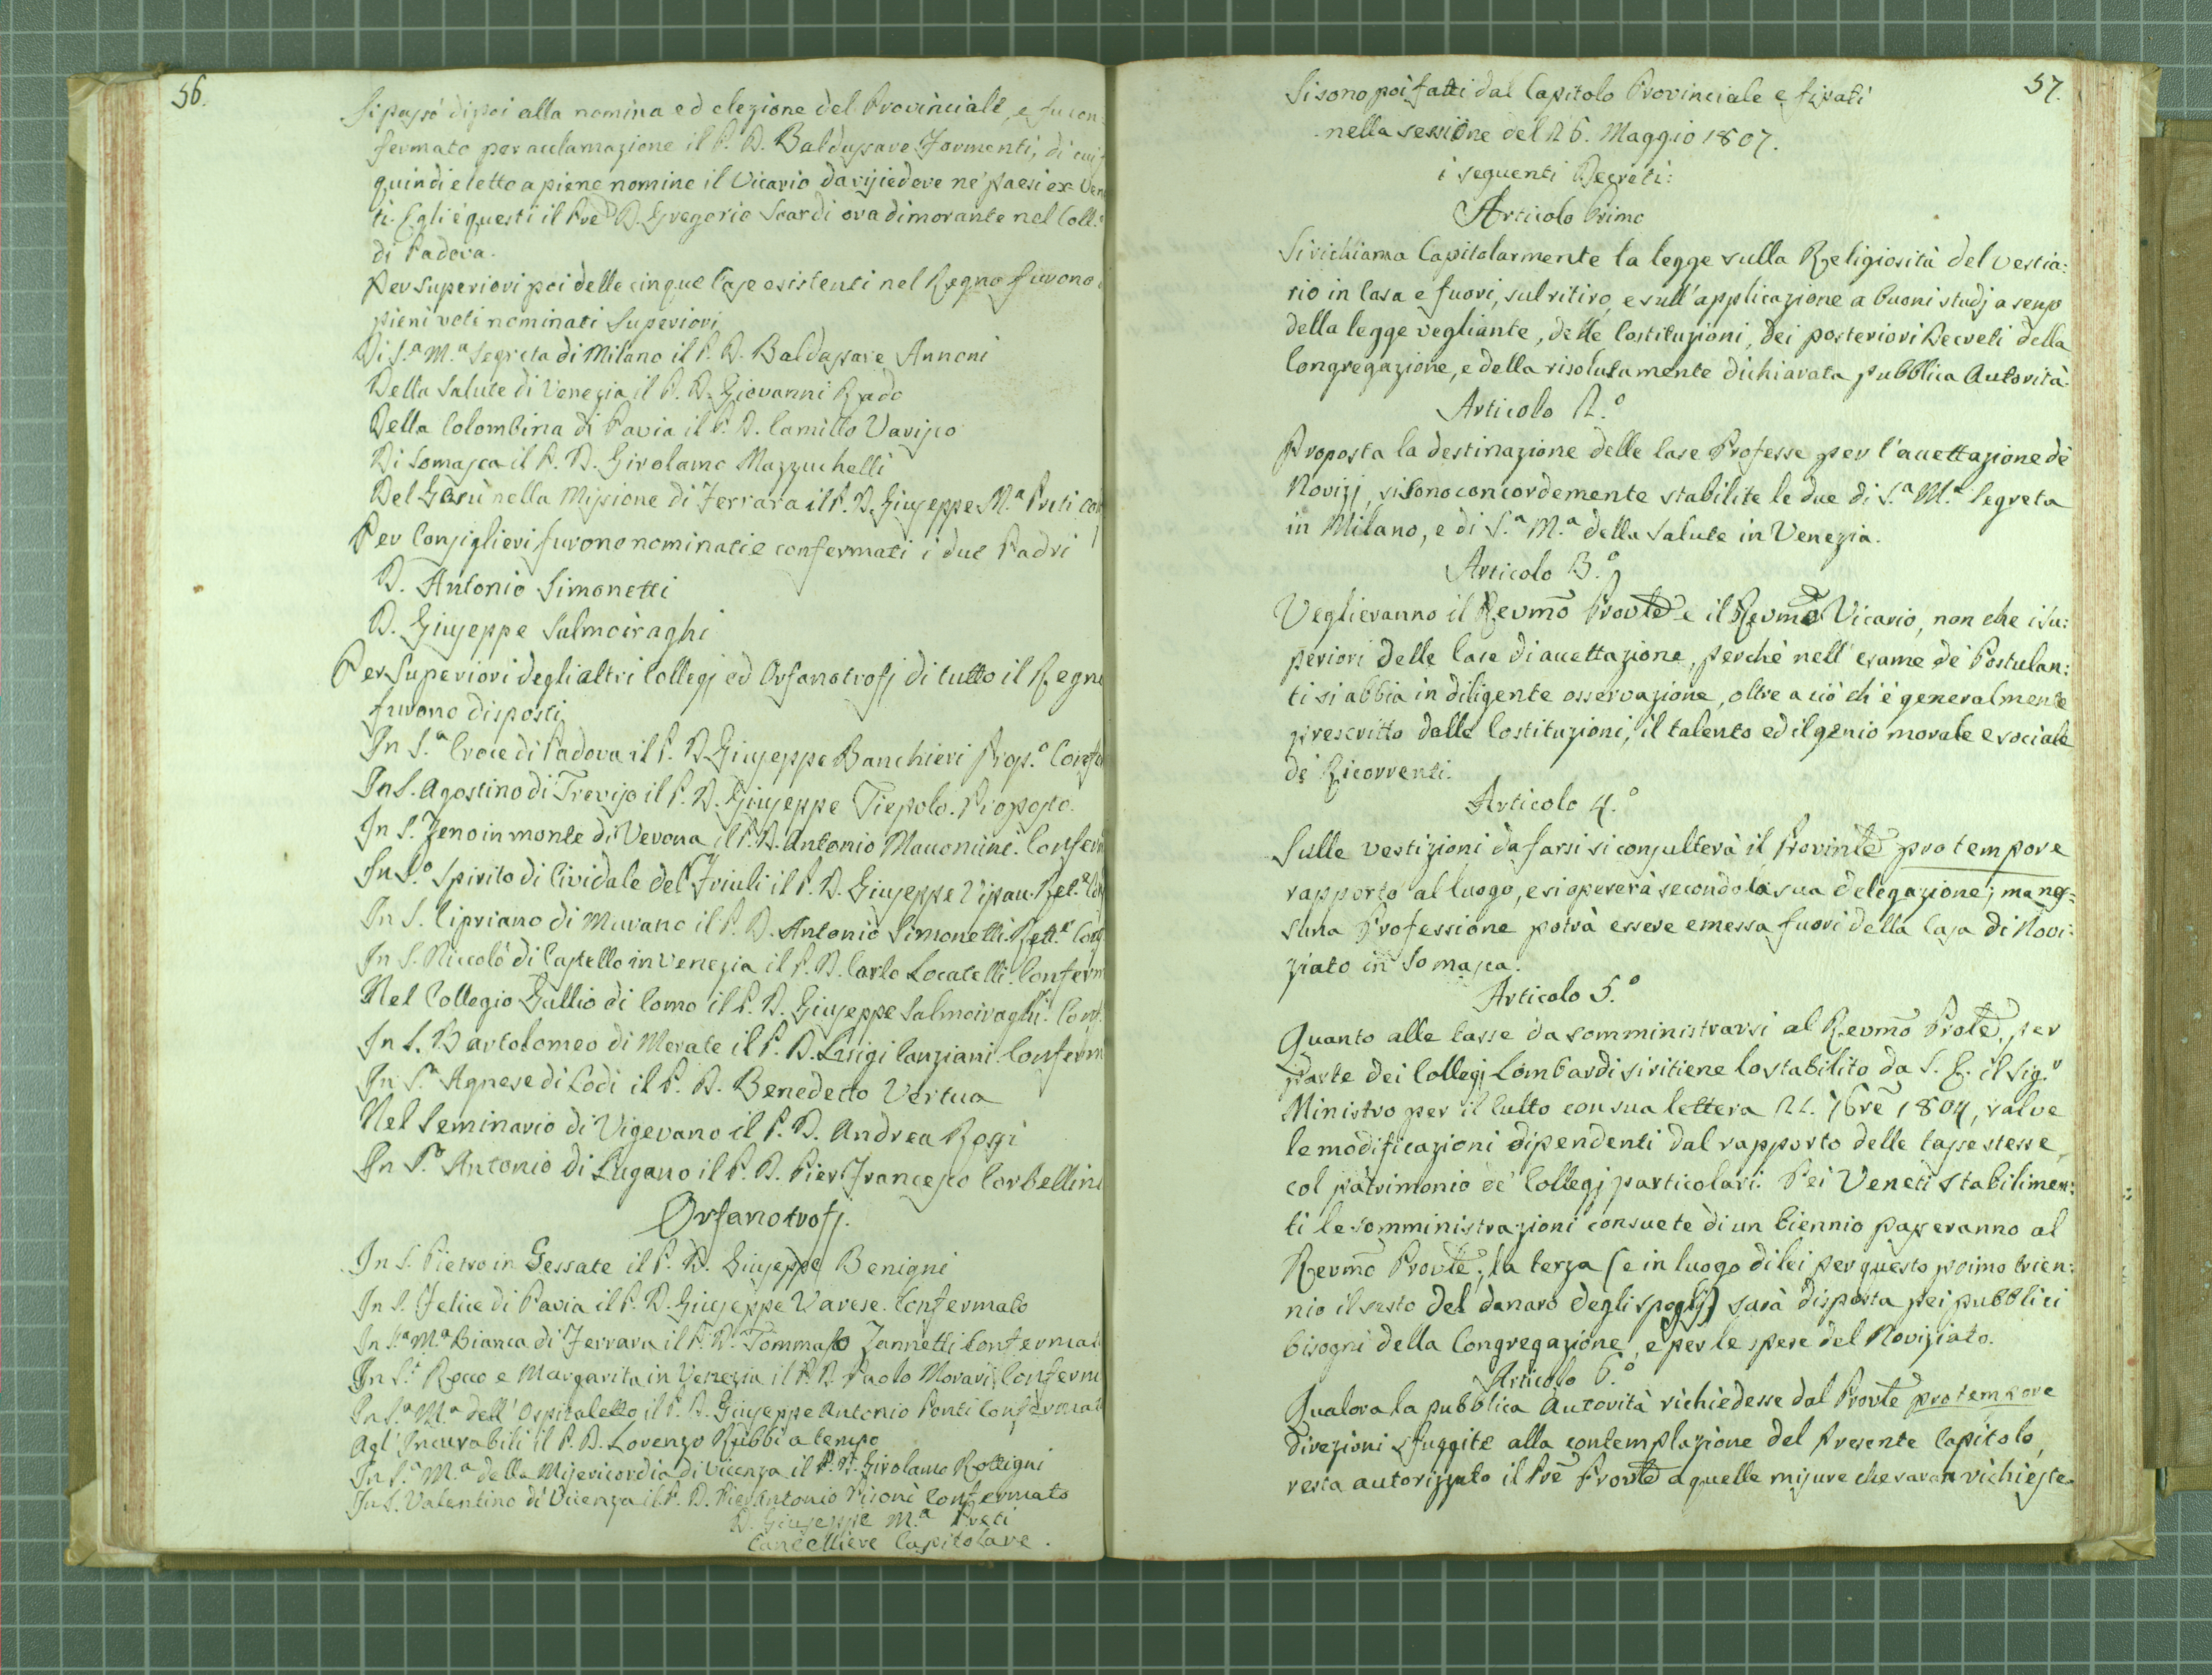 56.
Si passò dipoi alla nomina ed elezione del Provinciale, e fu con
fermato per acclamazione il P. D. Baldassare Formenti, di cui
quindi eletto a piene nomine il Vicario da risiedere ne' paesi ex Ven
ti. Egli è questi il Pre D. Gregorio Scardi ora dimorante nel Coll.º
di Padova.
Per Superiori poi delle cinque Case esistenti nel Regno furono
pieni voti nominati Superiori
Di S.ª M.ª Segreta di Milano il P. D. Baldassare Annoni
Della Salute di Venezia il P. D. Giovanni Rado
Della Colombina di Pavia il P. D. Camillo Varisco
Di Somasca il P. D. Girolamo Mazzuchelli
Del Gesù nella Missione di Ferrara il P. D. Giuseppe M.ª Preti con
Per Consiglieri furono nominati e confermati i due Padri
D. Antonio Simonetti
D. Giuseppe Salmoiraghi
Per Superiori degli altri Collegj ed Orfanotrofj di tutto il Regno
furono disposti
In S.ª Croce di Padova il P. D. Giuseppe Banchieri Prop.º Confer
In S. Agostino di Treviso il P. D. Giuseppe Tiepolo. Proposto.
In S. Zeno in monte di Verona il P. D. Antonio Mauonini. Conferm
In S.º Spirito di Cividale del Friuli il P. D. Giuseppe Vipau. Ret.e Con
In S. Cipriano di Murano il P. D. Antonio Simonetti. Rett.e Conf
In S. Niccolò di Castello in Venezia il P. D. Carlo Locatelli. Conferm
Nel Collegio Gallio di Como il P. D. Giuseppe Salmoiraghi. Conf.
In S. Bartolomeo di Merate il P. D. Luigi Canziani. Conferm
In S.ª Agnese di Lodi il P. D. Benedetto Vertua
Nel Seminario di Vigevano il P. D. Andrea Rossi
In S.º Antonio di Lugano il P. D. Pier Francesco Corbellini
Orfanotrofj.
In S. Pietro in Gessate il P. D. Giuseppe Benigni
In S. Felice di Pavia il P. D. Giuseppe Varese. Confermato
In S.ª M.ª Bianca di Ferrara il P. D. Tommaso Zannetti Confermat
In S.i Rocco e Margarita in Venezia il P. D. Paolo Morari, Conferm
In S.ª M.ª dell' Ospitaletto il P. D. Giuseppe Antonio Ponti Confermat
Agl' Incurabili il P. D. Lorenzo Rubbi a tempo
In S.ª M.ª della Misericordia di Vicenza il P. D. Girolamo Rottigni
In S. Valentino di Vicenza il P. D. Pier Antonio Pisoni Confermato
D. Giuseppe M.ª Preti
Cancelliere Capitolare.
57.
Si sono poi fatti dal Capitolo Provinciale e fissati
nella sessione del 26. Maggio 1807.
i seguenti Decreti:
Articolo Primo
Si richiama Capitolarmente la legge sulla Religiosità del vestia:
rio in Casa e fuori, sul ritiro, e sull' applicazione a buoni studj a senso
della legge vegliante, delle Costituzioni, dei posteriori Decreti della
Congregazione, e della risolutamente dichiarata pubblica Autorità.
Articolo 2.º
Proposta la destinazione delle Case Professe per l'accettazione de'
Novizj, si sono concordemente stabilite le due di S.ª M.ª Segreta
in Milano, e di S.ª M.ª della Salute in Venezia.
Articolo 3.º
Veglieranno il Revmo Provle e il Revmo Vicario, non che i Su:
periori delle Case di accettazione, perchè nell' esame de' Postulan:
ti si abbia in diligente osservazione, oltre a ciò ch' è generalmente
prescritto dalle Costituzioni, il talento ed il genio morale e sociale
de' Ricorrenti.
Articolo 4.º
Sulle vestizioni da farsi si consulterà il Provinle pro tempore
rapporto al luogo, e si opererà secondo la sua delegazione; ma nes=
suna Professione potrà essere emessa fuori della Casa di Novi:
ziato in Somasca.
Articolo 5.º
Quanto alle tasse da somministrarsi al Revmo Prole. per
parte dei Collegj Lombardi si ritiene lo stabilito da S. E. il Sig.r
Ministro per il Culto con sua lettera 21. 7bre 1804, salve
le modificazioni dipendenti dal rapporto delle tasse stesse,
col patrimonio de' Collegj particolari. Pei Veneti Stabilimen:
ti le somministrazioni consuete di un biennio passeranno al
Revmo Provle; la terza (e in luogo di lei per questo primo trien:
nio il sesto del danaro degli spoglj) sarà disposta pei pubblici
bisogni della Congregazione, e per le spese del Noviziato.
Articolo 6.º
Qualora la pubblica Autorità richiedesse dal Provle pro tempore
direzioni sfuggite alla contemplazione del presente Capitolo,
resta autorizzato il Pre Provle a quelle misure che saran richieste.